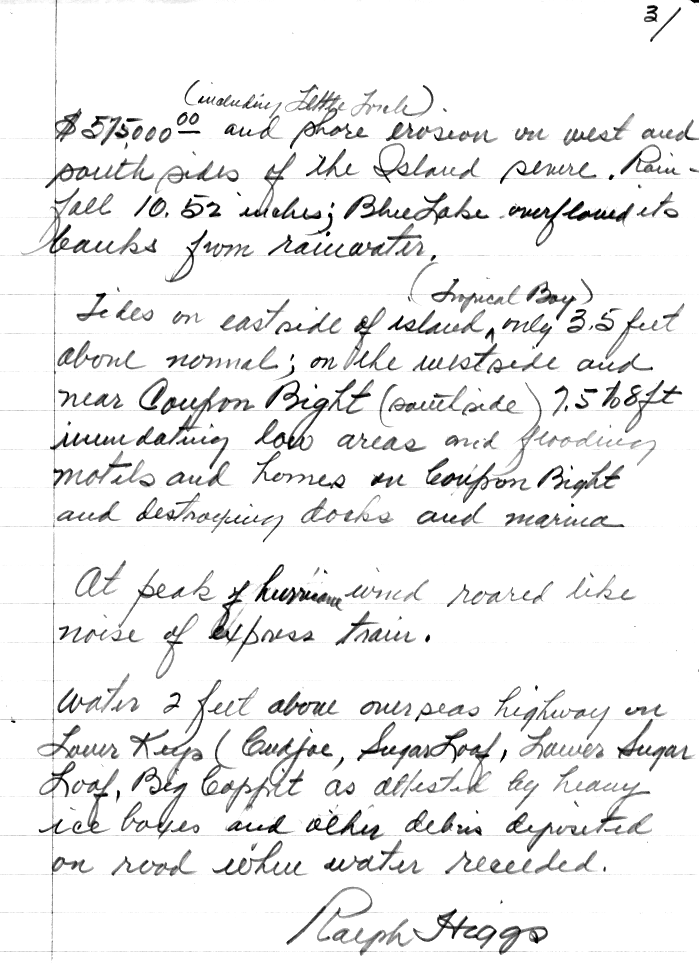 3/
(including Little Torch).
$575,000 00 and shore erosion on west and
south sides of the Island severe. Rain-
fall 10.52 inches; Blue Lake overflowed its
banks from rainwater.
(Tropical Bay)
Tides on east side of island ^ only 3.5 feet
above normal; on the west side and
near Coupon Bight (south side) 7.5 to 8 ft
inundating low areas and flooding
motels and homes on Coupon Bight
and destroying docks and marina
At peak of hurricane wind roared like
noise of express train.
Water 2 feet above overseas highway on
Lower Keys (Cudjoe, Sugar Loaf, Lower Sugar
Loaf, Big Coppit as attested by heavy
ice boxes and other debris deposited
on road when water receeded.
Ralph Higgs